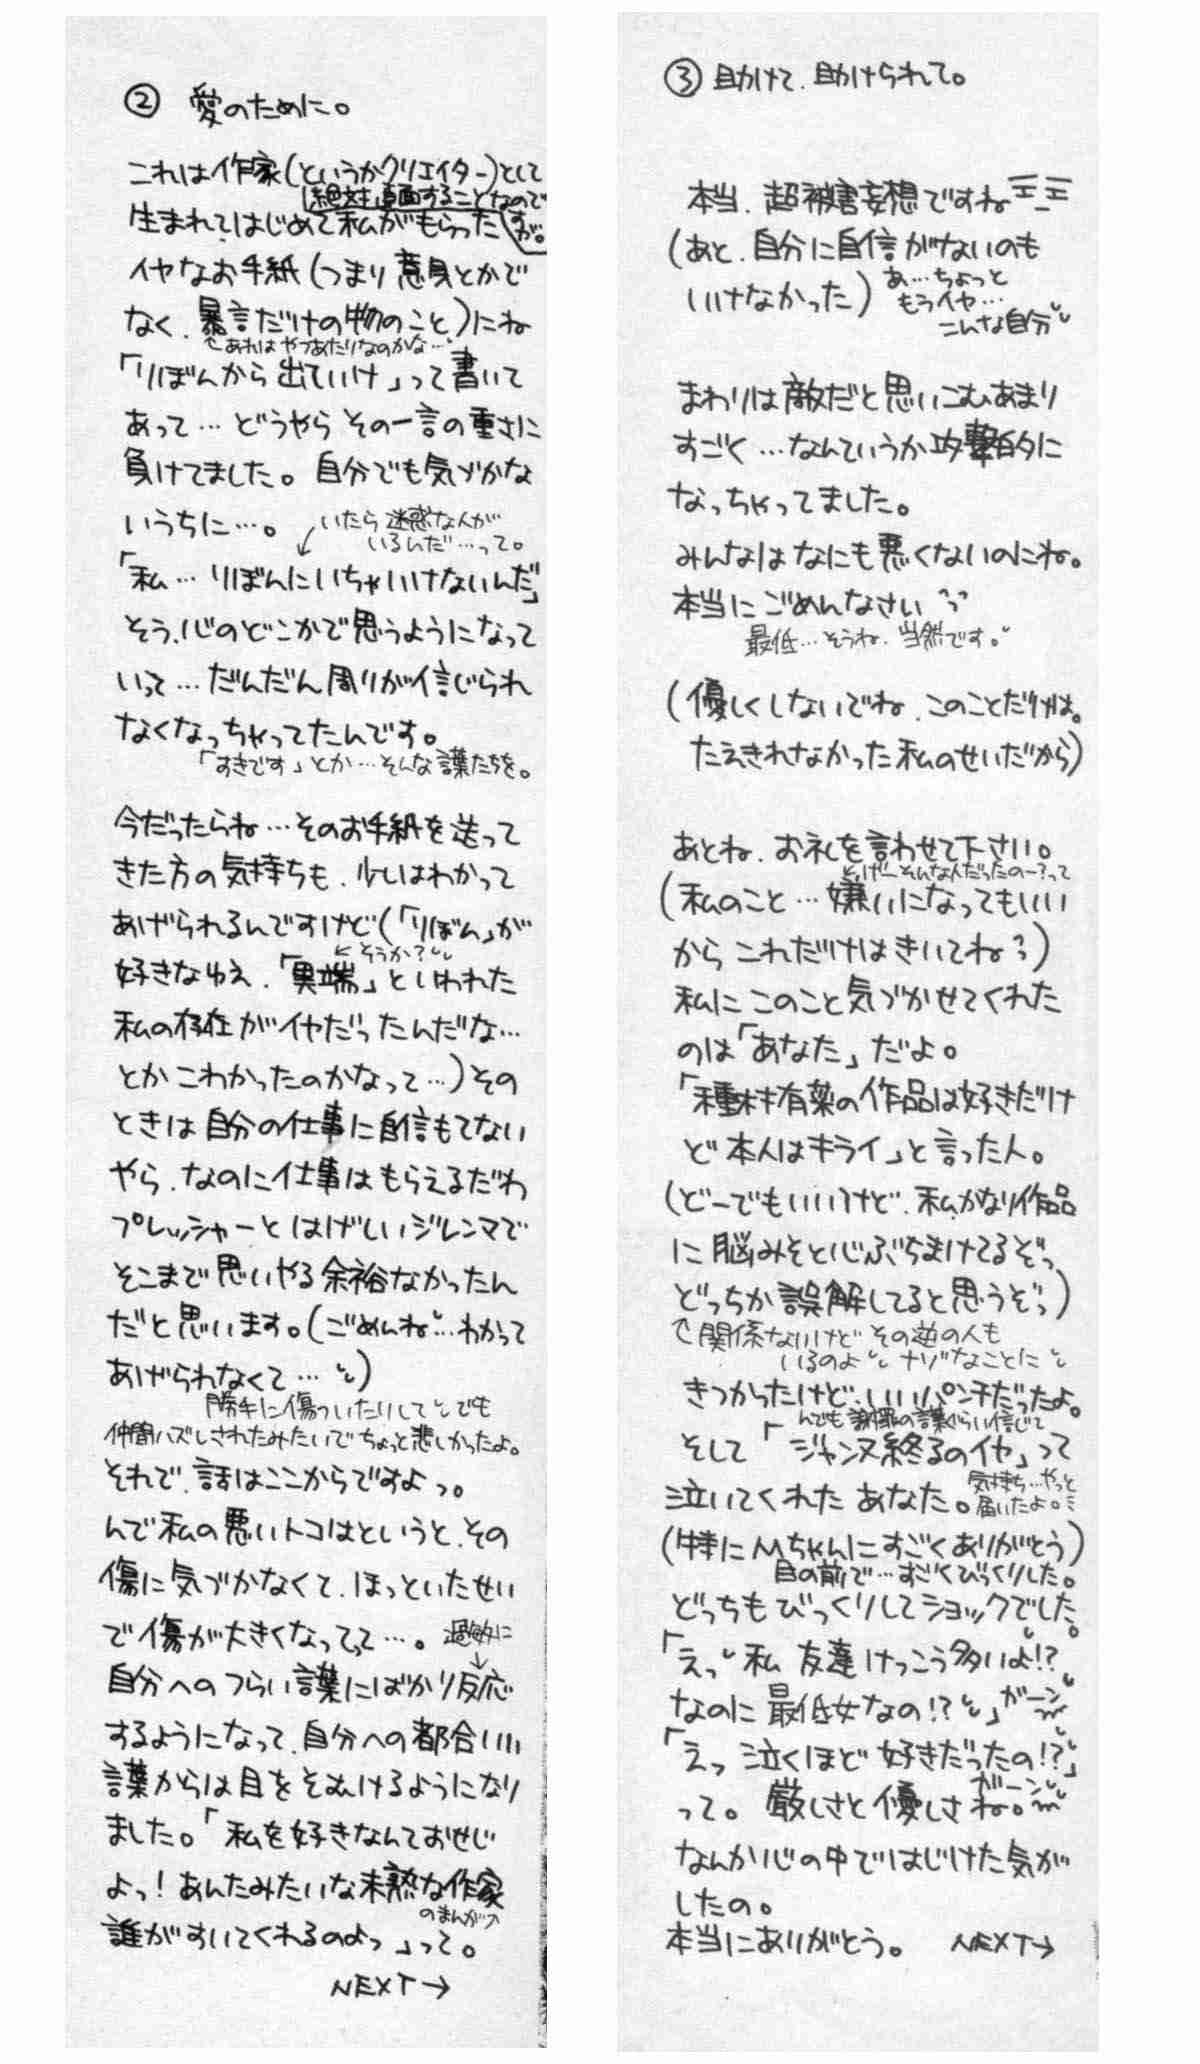 ② 愛のために。
これは作家(というかクリエイター)として
絶対直面することなので
すが。
生まれてはじめて私がもらった
イヤなお手紙(つまり意見とかで
なく、暴言だけの物のこと)にね
←あれはやつあたりなのかな…
「りぼんから出ていけ」って書いて
あって…どうやらその一言の重さに
負けてました。自分でも気づかな
いうちに…。
いたら迷惑な人が
いるんだ…って。
「私…りぼんにいちゃいけないんだ」
そう、心のどこかで思うようになって
いって…だんだん周りが信じられ
なくなっちゃってたんです。
「すきです」とか…そんな言葉たちを。
今だったらね…そのお手紙を送って
きた方の気持ちも、少しはわかって
あげられるんですけど(「りぼん」が
←そうか?
好きなゆえ、「異端」といわれた
私の存在がイヤだったんだな…
とかこわかったのかなって…)その
ときは自分の仕事に自信もてない
やら、なのに仕事はもらえるだわ
プレッシャーとはげしいジレンマで
そこまで思いやる余裕なかったん
だと思います。(ごめんね…わかって
あげられなくて…)
勝手に傷ついたりして でも
仲間ハズレされたみたいでちょっと悲しかったよ。
それで、話はここからですよっ。
んで私の悪いトコはというと、その
傷に気づかなくて、ほっといたせい
で傷が大きくなってって…。
過敏に
自分へのつらい言葉にばかり反応
するようになって、自分への都合いい
言葉からは目をそむけるようになり
ました。「私を好きなんておせじ
よっ!あんたみたいな未熟な作家
のまんが
誰がすいてくれるのよっ」って。
NEXT→
③ 助けて、助けられて。
本当、超被害妄想ですね
(あと、自分に自信がないのも
いけなかった)
あ…ちょっと
もうイヤ…
こんな自分
まわりは敵だと思いこむあまり
すごく…なんていうか攻撃的に
なっちゃってました。
みんなはなにも悪くないのにね。
本当にごめんなさい
最低…そうね、当然です。
(優しくしないでね、このことだけは。
たえきれなかった私のせいだから)
あとね、お礼を言わせて下さい。
げーそんな人だったのー?って
(私のこと…嫌いになってもいい
からこれだけはきいてね?)
私にこのこと気づかせてくれた
のは「あなた」だよ。
「種村有菜の作品は好きだけ
ど本人はキライ」と言った人。
(どーでもいいけど、私かなり作品
に脳みそと心ぶちまけてるぞっ
どっちか誤解してると思うぞっ)
↑関係ないけどその逆の人も
いるのよ ナゾなことに
きつかったけど、いいパンチだったよ。
んでも謝罪の言葉ぐらい信じて
そして「ジャンヌ終るのイヤ」って
泣いてくれたあなた。
気持ち…やっと
届いたよ。
(特にMちゃんにすごくありがとう)
目の前で…すごくびっくりした。
どっちもびっくりしてショックでした。
「えっ 私 友達けっこう多いよ!?
なのに最低女なの!?」ガーン
「えっ 泣くほど好きだったの!?」
ガーン
って。厳しさと優しさね。
なんか心の中ではじけた気が
したの。
本当にありがとう。 NEXT→